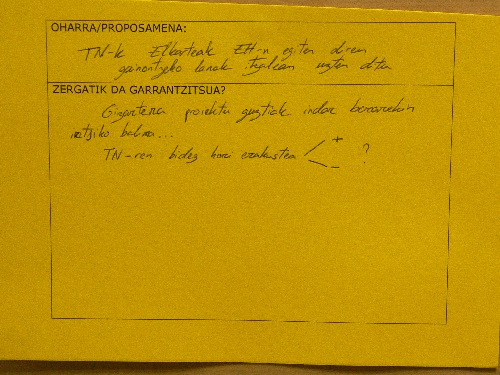 OHARRA/PROPOSAMENA:
TN-k Elkarteak EH-n egiten diren
gainontzeko lanak itzalean uzten ditu
ZERGATIK DA GARRANTZITSUA?
Gizartera proiektu guztiak indar berdinarekin
iritsiko balira...
TN-ren bidez hori erakustea + - ?